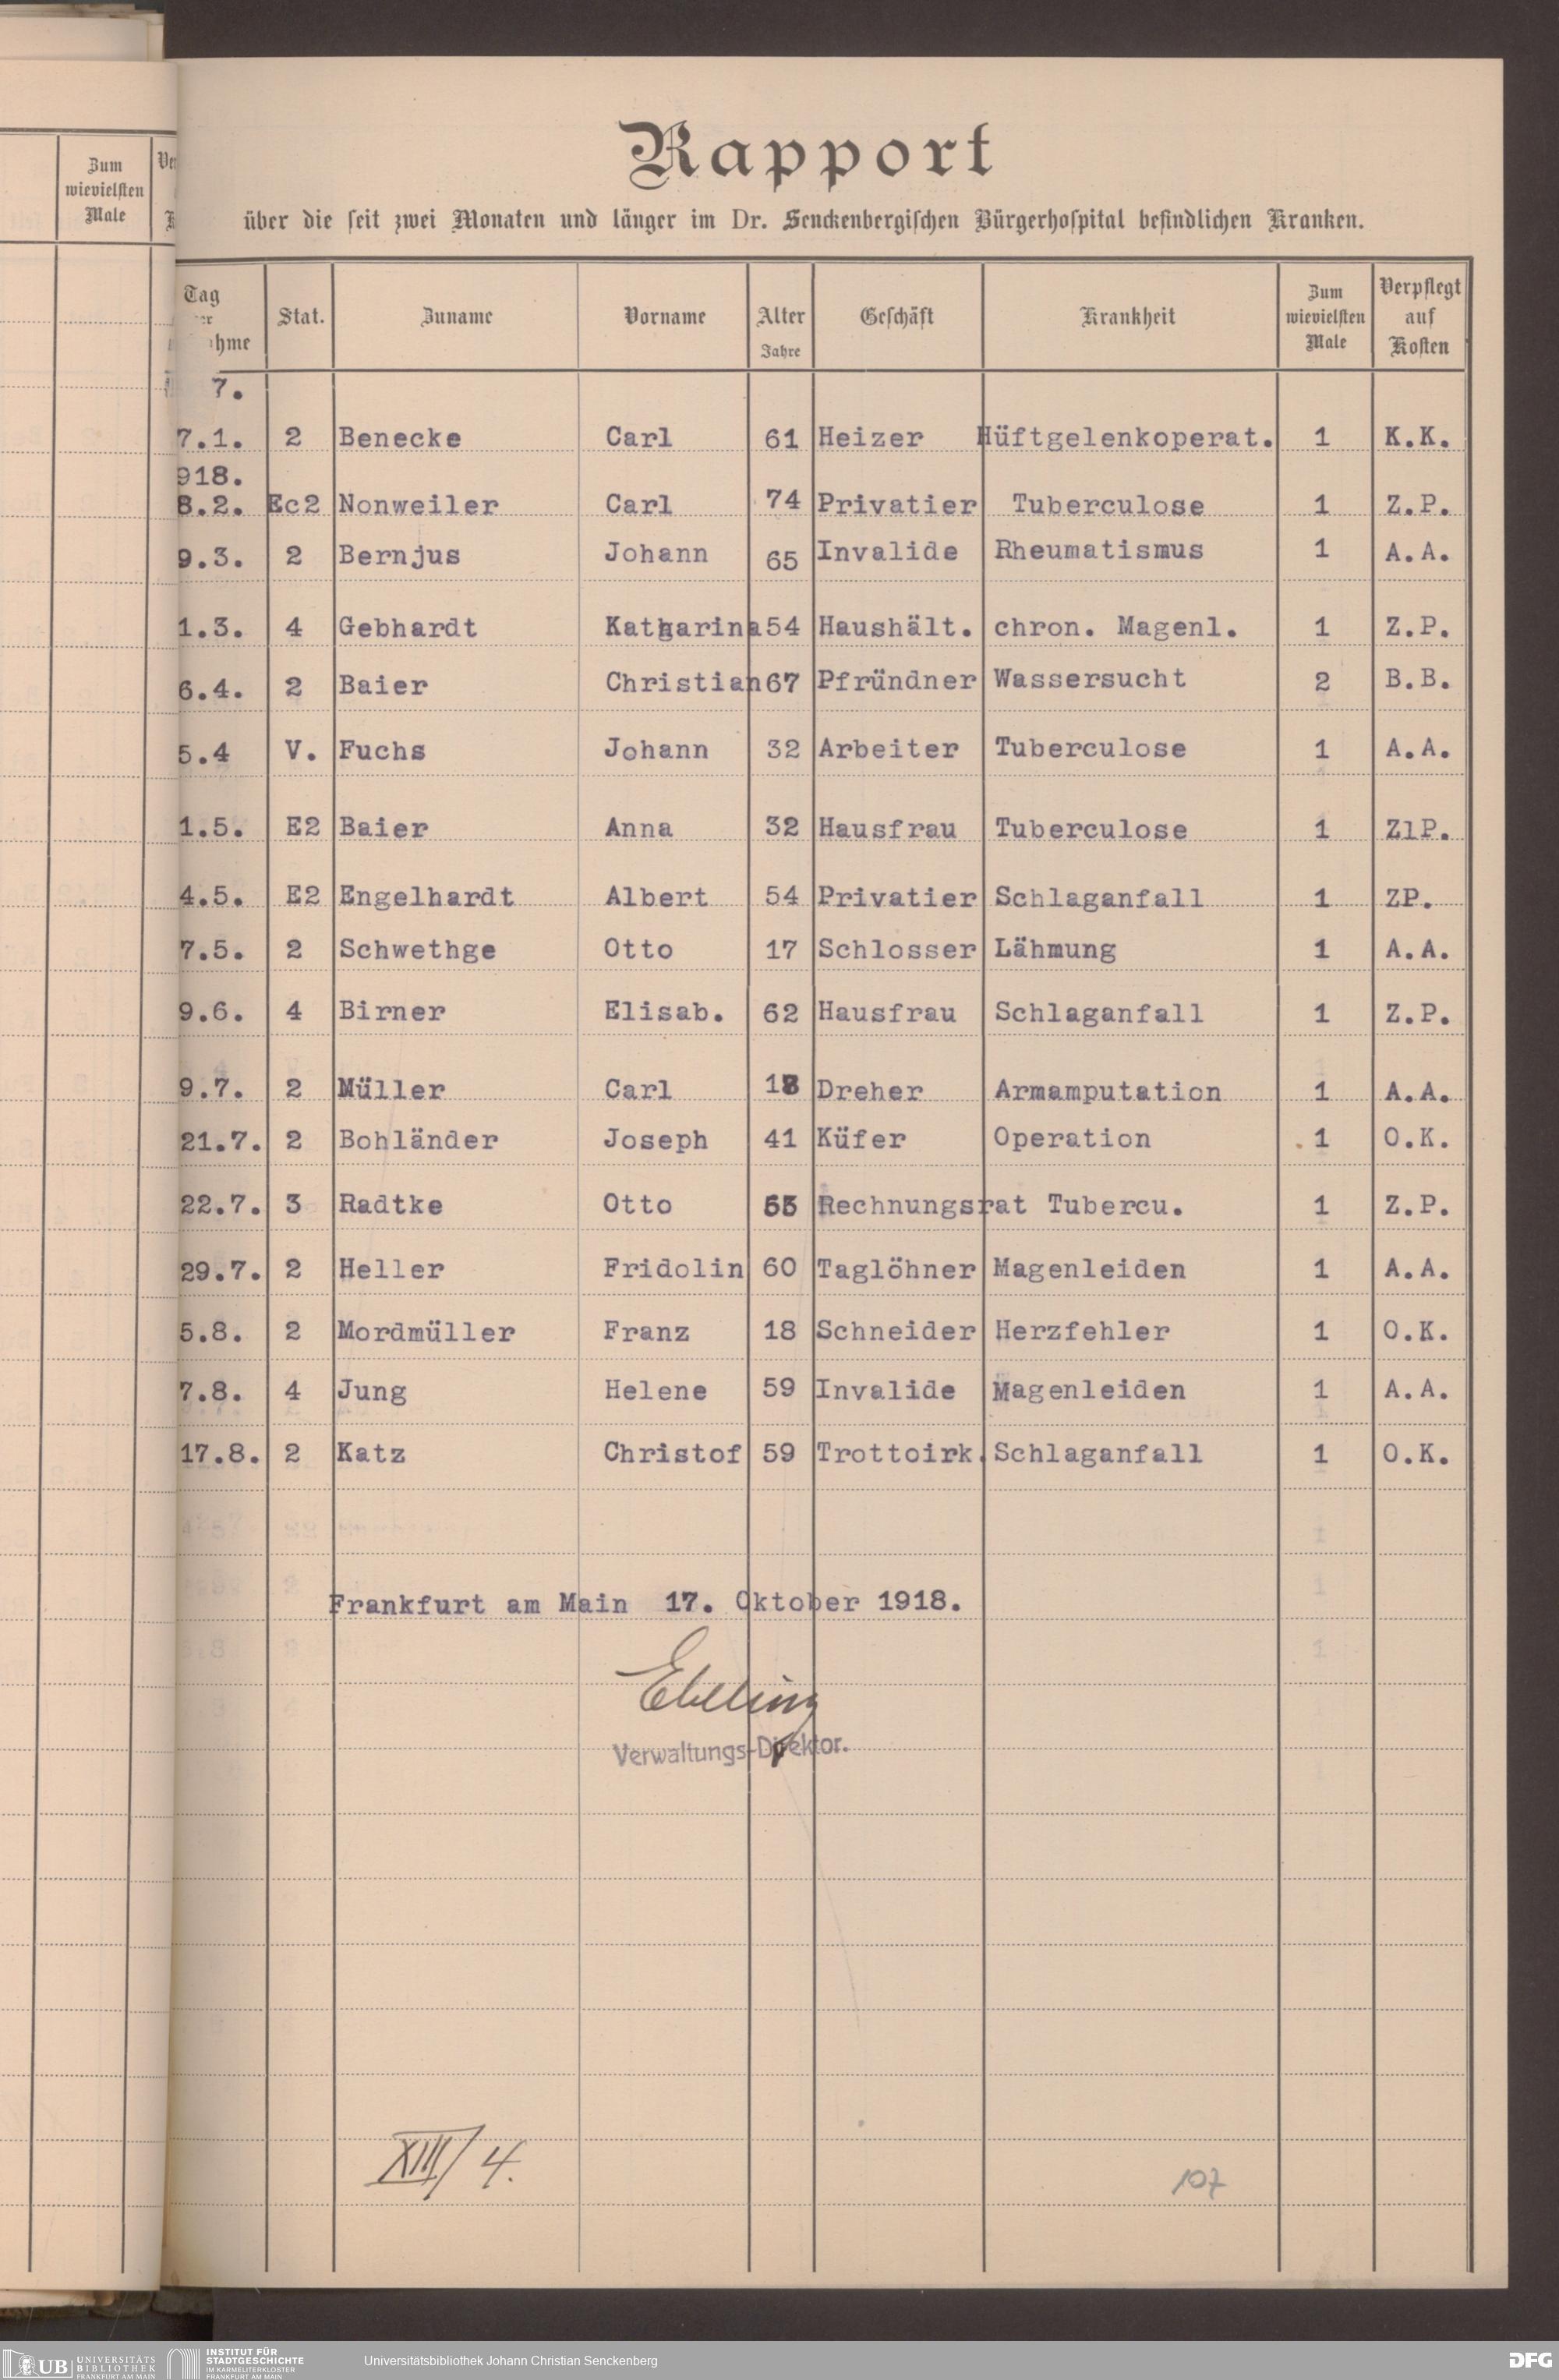 Zum
wievielsten
Male
Rapport
über die seit zwei Monaten und länger im Dr. Senckenbergischen Bürgerhospital befindlichen Kranken.
Tag Stat. Zuname Vorname Alter Jahre Geschäft Krankheit Zum wievielsten Male Verpflegt auf Kosten
7.
7.1. 2 Benecke Carl 61 Heizer Hüftgelenkoperat. 1 K.K.
918.
8.2. Ec2 Nonweiler Carl 74 Privatier Tuberculose 1 Z.P.
9.3. 2 Bernjus Johann 65 Invalide Rheumatismus 1 A.A.
1.3. 4 Gebhardt Katharina 54 Haushält. chron. Magenl. 1 Z.P.
6.4. 2 Baier Christian 67 Pfründner Wassersucht 2 B.B.
5.4 V. Fuchs Johann 32 Arbeiter Tuberculose 1 A.A.
1.5. E2 Baier Anna 32 Hausfrau Tuberculose 1 ZlP.
4.5. E2 Engelhardt Albert 54 Privatier Schlaganfall 1 ZP.
7.5. 2 Schwethge Otto 17 Schlosser Lähmung 1 A.A.
9.6. 4 Birner Elisab. 62 Hausfrau Schlaganfall 1 Z.P.
9.7. 2 Müller Carl Dreher Armamputation 1 A.A.
21.7. 2 Bohländer Joseph 41 Küfer Operation 1 O.K.
22.7. 3 Radtke Otto Rechnungsrat Tubercu. 1 Z.P.
29.7. 2 Heller Fridolin 60 Taglöhner Magenleiden 1 A.A.
5.8. 2 Mordmüller Franz 18 Schneider Herzfehler 1 O.K.
7.8. 4 Jung Helene 59 Invalide Magenleiden 1 A.A.
17.8. 2 Katz Christof 59 Trottoirk. Schlaganfall 1 O.K.
Frankfurt am Main 17. Oktober 1918.
Ebeling
Verwaltungs-Direktor.
XIII/4.
107
UB UNIVERSITÄTS BIBLIOTHEK FRANKFURT AM MAIN
INSTITUT FÜR STADTGESCHICHTE IM KARMELITERKLOSTER FRANKFURT AM MAIN
Universitätsbibliothek Johann Christian Senckenberg
DFG